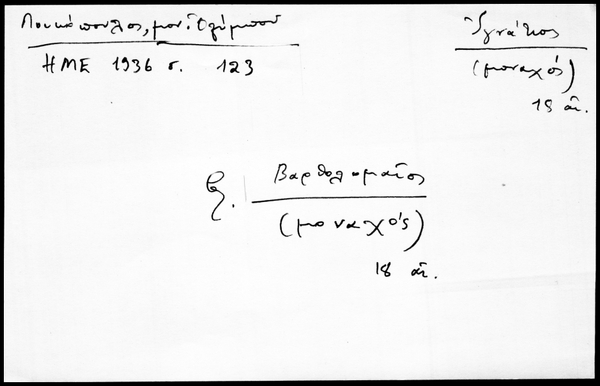 Λουκόπουλος, μον. Ὀλύμπου
ΗΜΕ 1936 σ. 123
Ἰγνάτιος
(μοναχός)
18 αἰ.
βλ. Βαρθολομαῖος
(μοναχός)
18 αἰ.